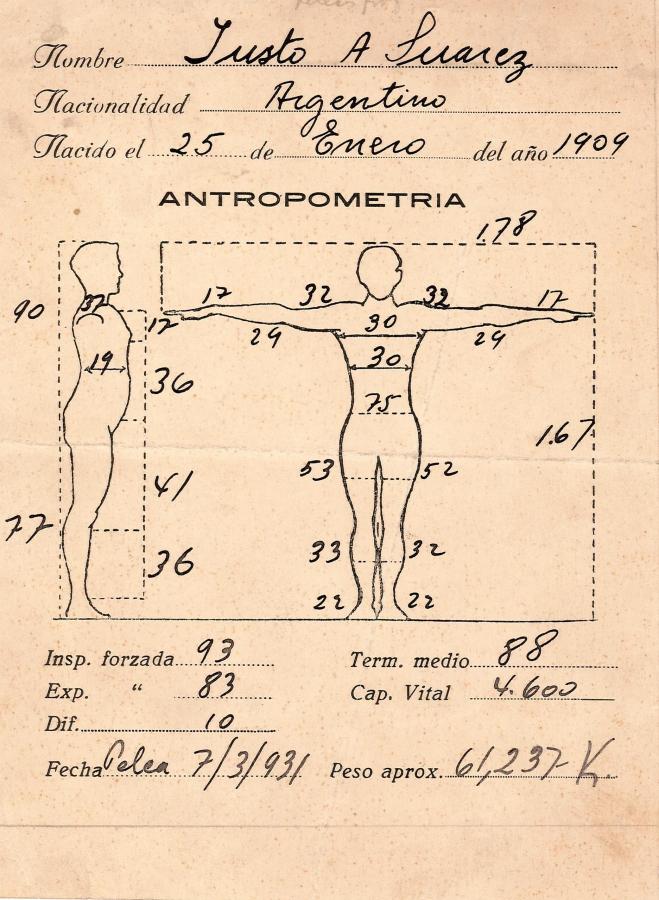 Nombre Justo A Suarez
Nacionalidad Argentino
Nacido el 25 de Enero del año 1909
ANTROPOMETRIA
1.78
17 32 32 17
90 37 12 29 30 29
19 36 30
75
1.67
53 52
41
77
33 32
36
22 22
Insp. forzada 93 Term. medio 88
Exp. “ 83 Cap. Vital 4.600
Dif. 10
Fecha Pelea 7/3/931 Peso aprox. 61,237 K.